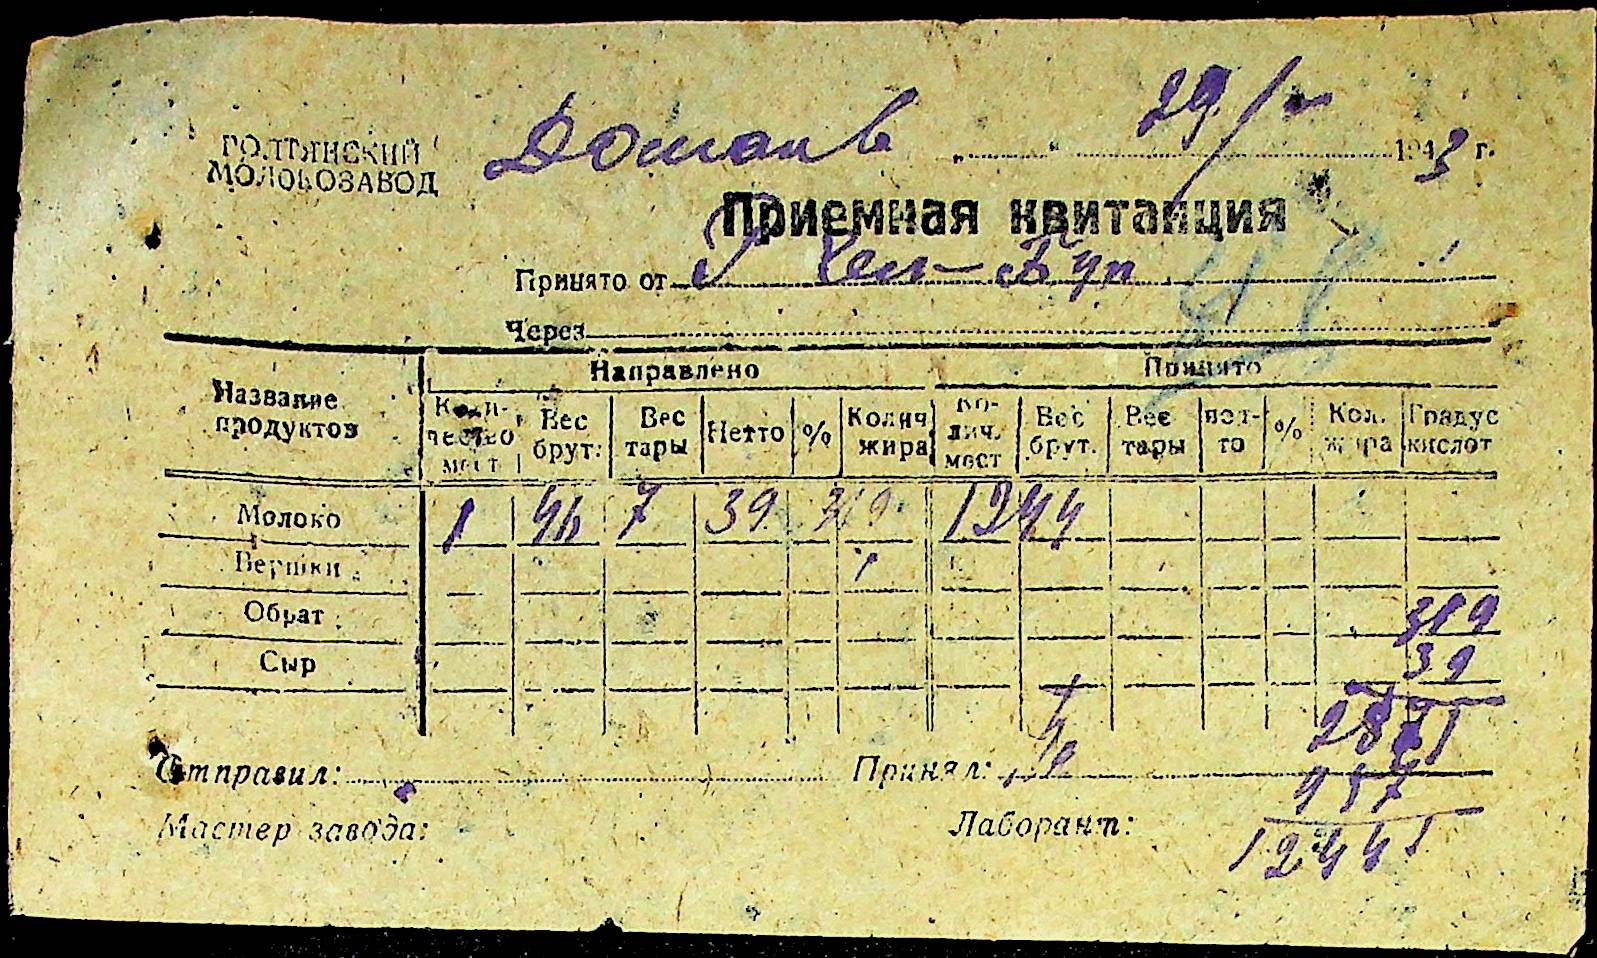 ГОЛТЯНСКИЙ
МОЛОКОЗАВОД
29/ 1943 г.
Приемная квитанция
Принято от
Через
Название продуктов
Направлено
Принято
Количество мест
Вес брут.
Вес тары
Нетто
%
Колич жира
Ко-лич. мест
Вес брут.
Вес тары
нет-то
%
Кол. жира
Градус кислот
Молоко 1 46 7 39 319 1244
Вершки
Обрат
Сыр
319
39
2871
957
12441
Отправил:
Принял:
Мастер завода:
Лаборант: